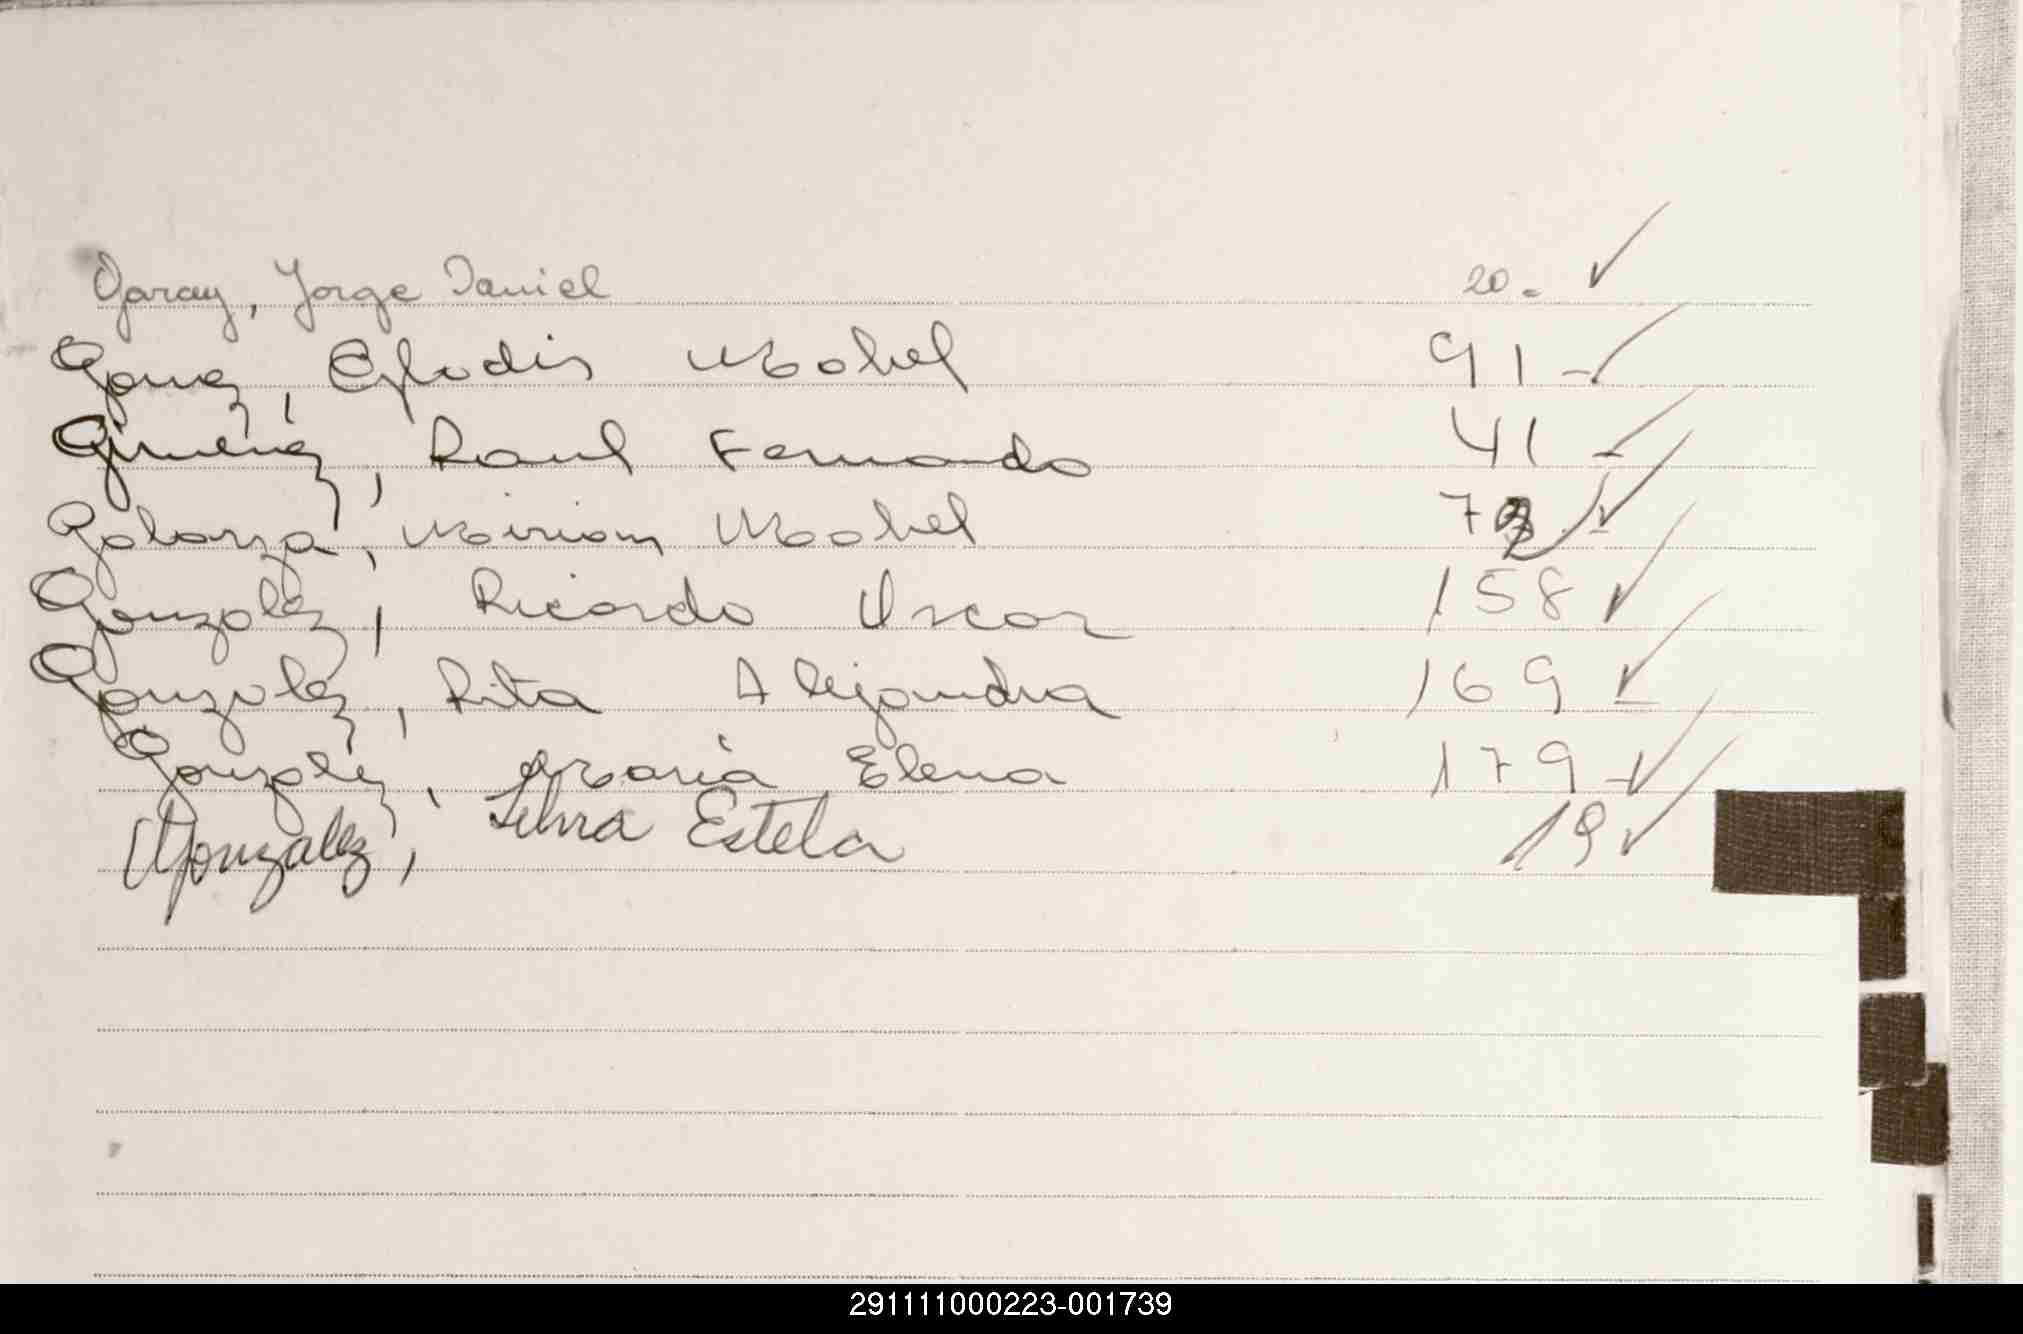 Garay, Jorge Daniel 20.-
Gomez, Mabel 91 -
Gimenez, Raul Fernando 41 -
Galarza, Miriam Mabel 72 -
Gonzalez, Ricardo Oscar 158
Gonzalez, Rita Alejandra 169 -
Gonzalez, María Elena 179 -
Gonzalez, Silvia Estela 19
291111000223-001739